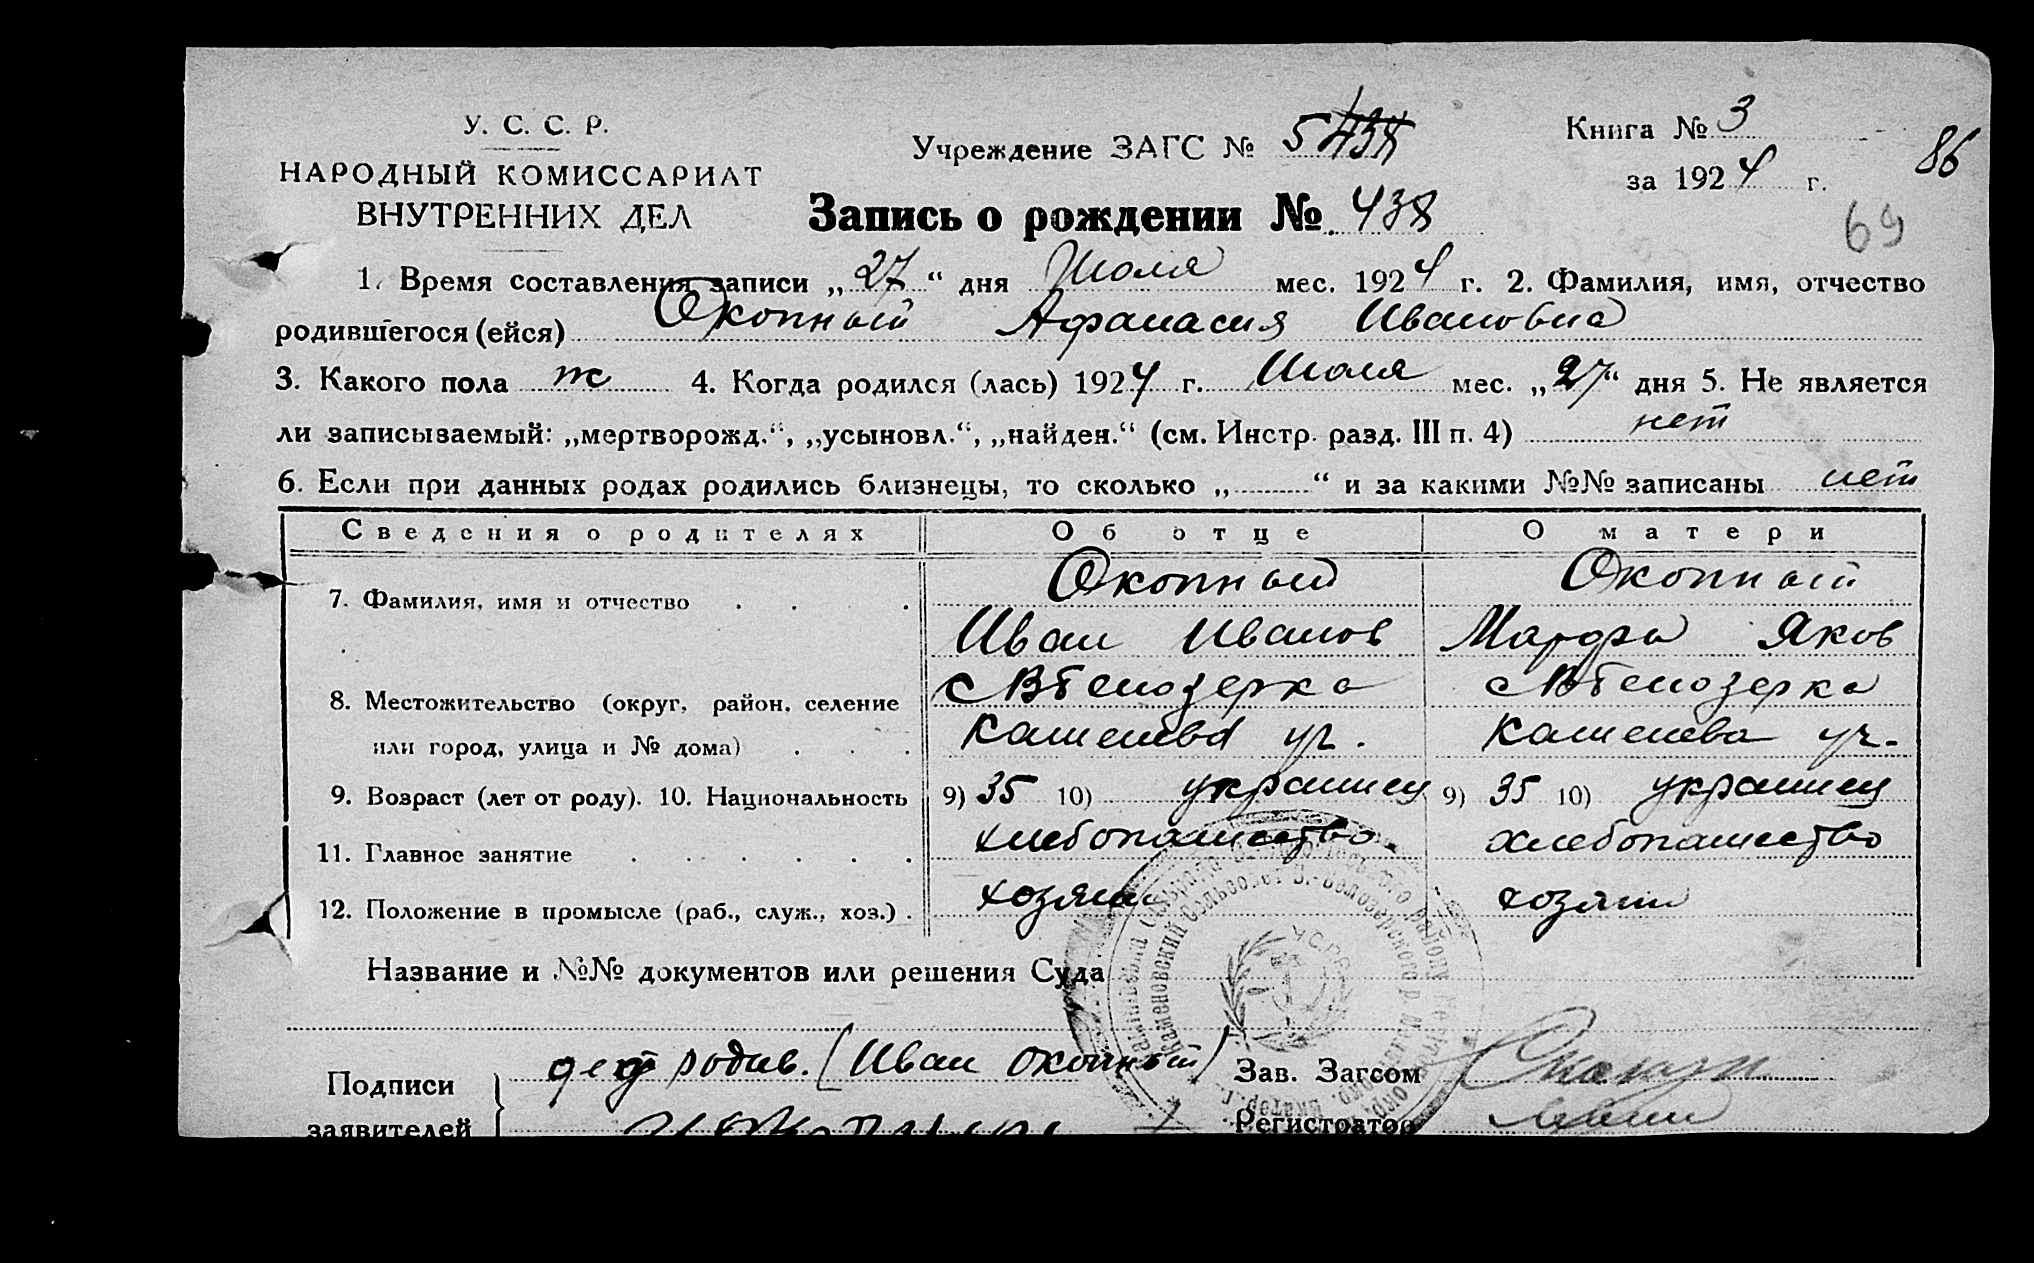 У. С. С. Р.
НАРОДНЫЙ КОМИССАРИАТ
ВНУТРЕННИХ ДЕЛ
Учреждение ЗАГС № 5
Книга № 3
за 1924 г.
86
69
Запись о рождении № 438
1. Время составления записи „27“ дня Июля мес. 1924 г. 2. Фамилия, имя, отчество
родившегося (ейся) Окопный Афанасия Ивановна
3. Какого пола ж 4. Когда родился (лась) 1924 г. Июля мес. „27“ дня 5. Не является
ли записываемый: „мертворожд.“, „усыновл.“, „найден.“ (см. Инстр. разд. III п. 4) нет
6. Если при данных родах родились близнецы, то сколько „ “ и за какими №№ записаны нет
Сведения о родителях Об отце О матери
7. Фамилия, имя и отчество Окопный Окопный
Иван Иванов Марфа Яков
8. Местожительство (округ, район, селение
или город, улица и № дома)
9. Возраст (лет от роду). 10. Национальность 9) 35 10) украинец 9) 35 10) украинец
11. Главное занятие хлебопашество. хлебопашество
12. Положение в промысле (раб., служ., хоз.) хозяин хозяин
Название и №№ документов или решения Суда
Подписи родив. (Иван Окопный) Зав. Загсом
заявителей Регистратор